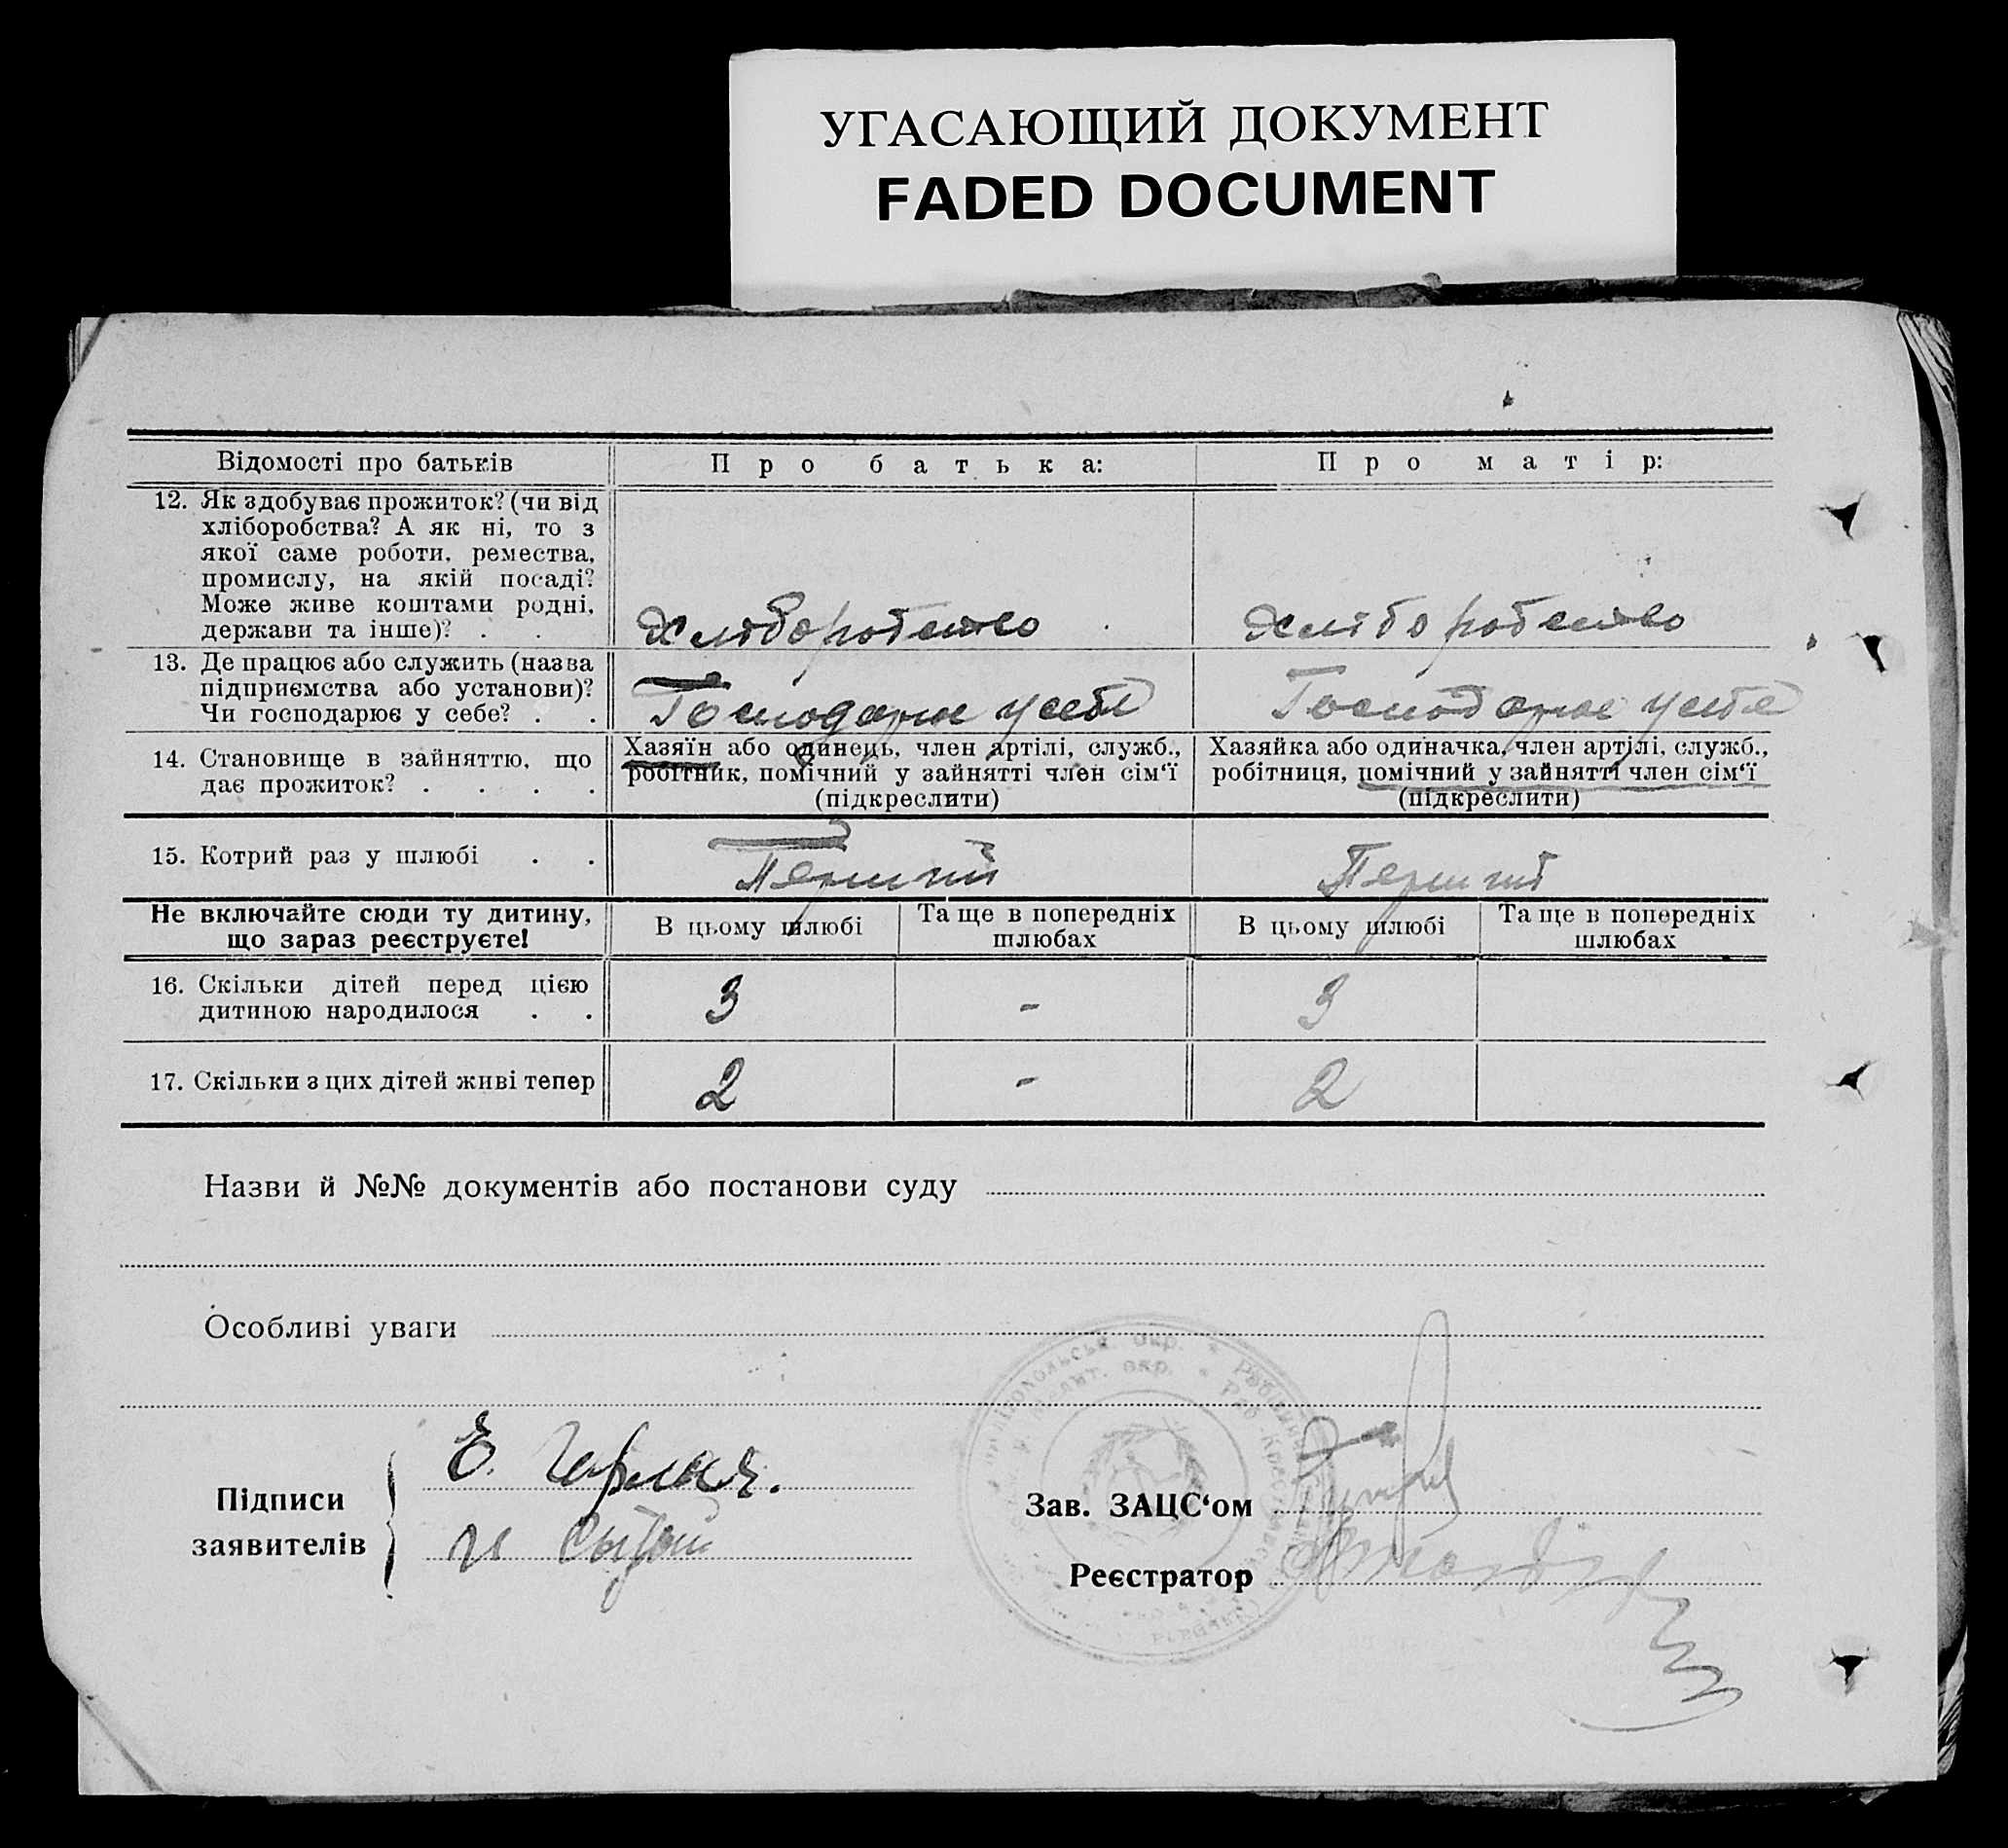 УГАСАЮЩИЙ ДОКУМЕНТ
FADED DOCUMENT
Відомості про батьків
Про батька:
Про матір:
12. Як здобуває прожиток? (чи від
хліборобства? А як ні, то з
якої саме роботи, ремества,
промислу, на якій посаді?
Може живе коштами родні,
держави та інше)? . .
Хліборобство
Хліборобство
13. Де працює або служить (назва
підприємства або установи)?
Чи господарює у себе? . .
Господарює у себе
Господарює у себе
14. Становище в зайняттю, що
дає прожиток? . . . .
Хазяїн або одинець, член артілі, служб.,
робітник, помічний у зайнятті член сім‘ї
(підкреслити)
Хазяйка або одиначка, член артілі, служб.,
робітниця, помічний у зайнятті член сім‘ї
(підкреслити)
15. Котрий раз у шлюбі . .
Перший
Перший
Не включайте сюди ту дитину,
що зараз реєструєте!
В цьому шлюбі
Та ще в попередніх
шлюбах
В цьому шлюбі
Та ще в попередніх
шлюбах
16. Скільки дітей перед цією
дитиною народилося . .
3
-
3
17. Скільки з цих дітей живі тепер
2
-
2
Назви й №№ документів або постанови суду
Особливі уваги
Підписи
заявителів
Е.
Зав. ЗАЦС‘ом
Реєстратор